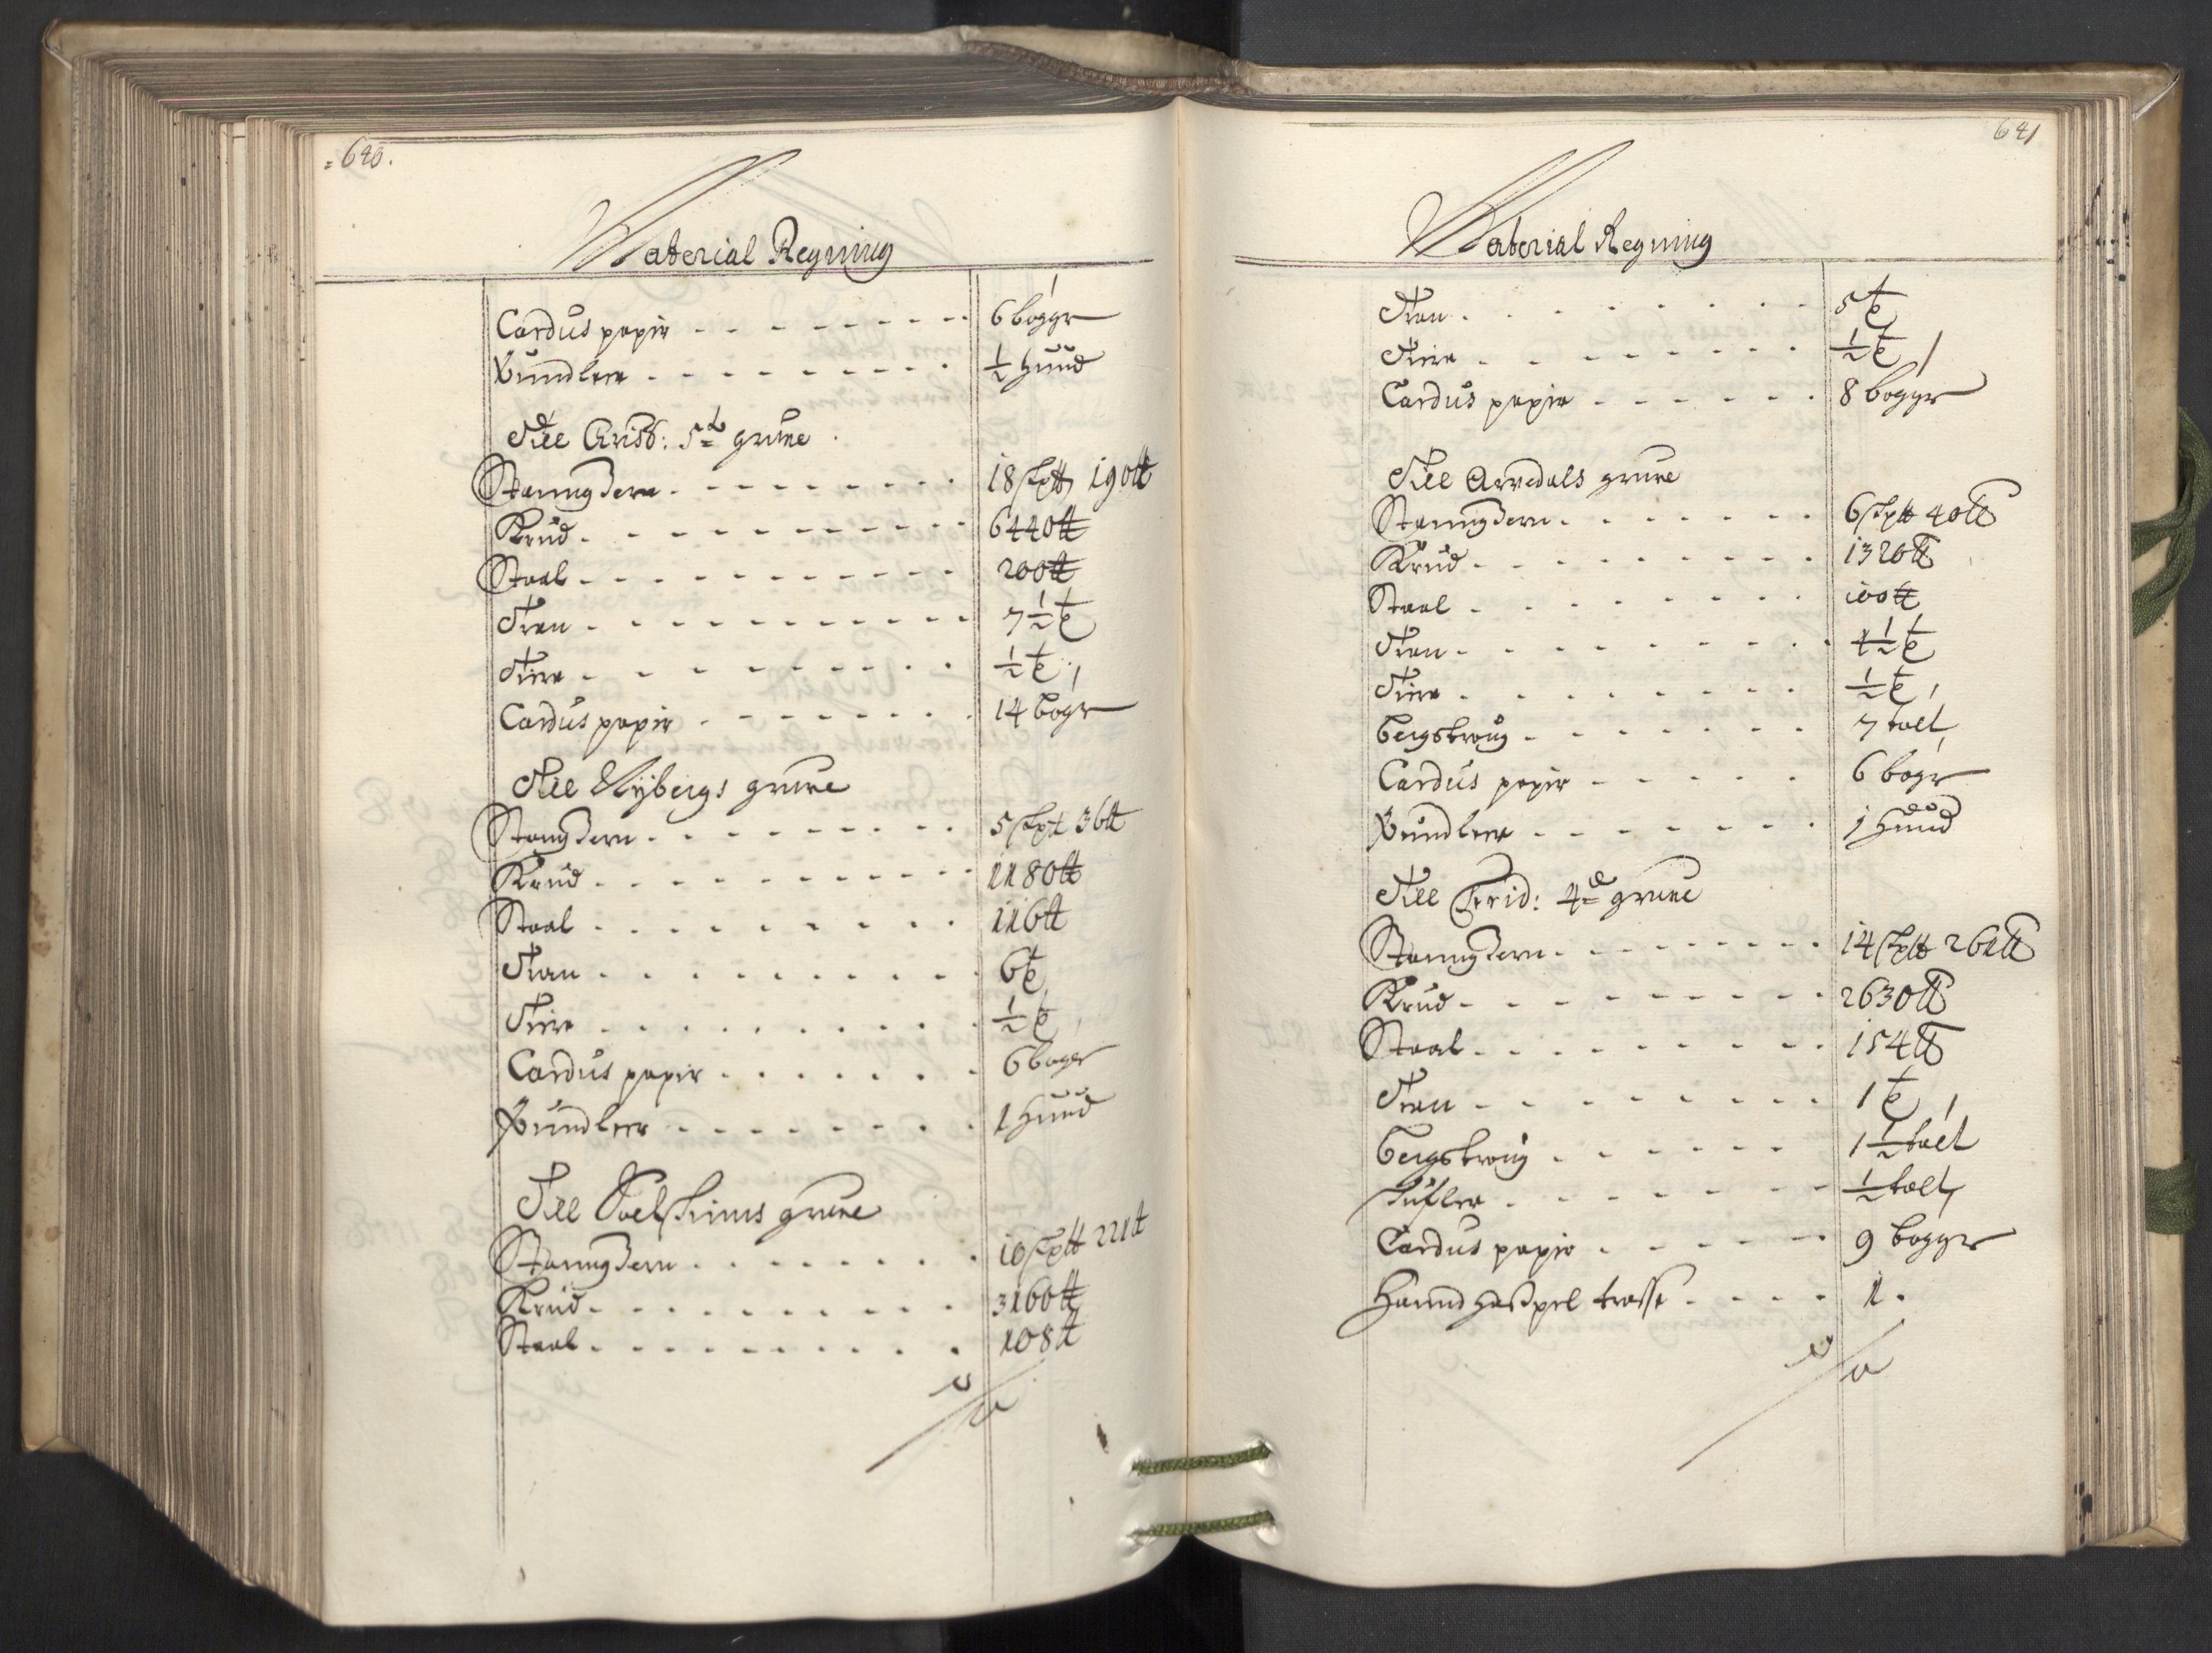 640.
Material Regning
Cardus papir 6 bogger
Bundleer ½ hund
Till Crist: 5te grune
StanngJern 18 skp℔ 190℔
Krud 6440℔
Staal 200℔
Tran 7½ t
Tiere ½ t
Cardus papir 14 boger
Till Nybergs grune
StangJern 5 skp℔ 36℔
Krud 1180℔
Staal 116℔
Tran 6 t
Tiere ½ t
Cardus papir 6 boger
Bundleer 1 hund
Till grune
StanngJern 10 skp℔ 221℔
Krud 3160℔
Staal 108℔
641
Material Regning
Tran 5 t
Tiere ½ t
Cardus papir 8 bogger
Till Arvedals grune
StanngJern 6 skp℔ 40℔
Krud 1320℔
Staal 100℔
Tran 1½ t
Tiere ½ t
Bergstroug 7 tolt
Cardus papir 6 boger
Bundleer 1 hund
Till Frid: 4de grune
StanngJern 14 skp℔ 261℔
Krud 2630℔
Staal 154℔
Tran 1 t
Bergstroug 1½ tolt
Skufler ½ tolt
Cardus papir 9 bogger
Haund haspel trosse 1.